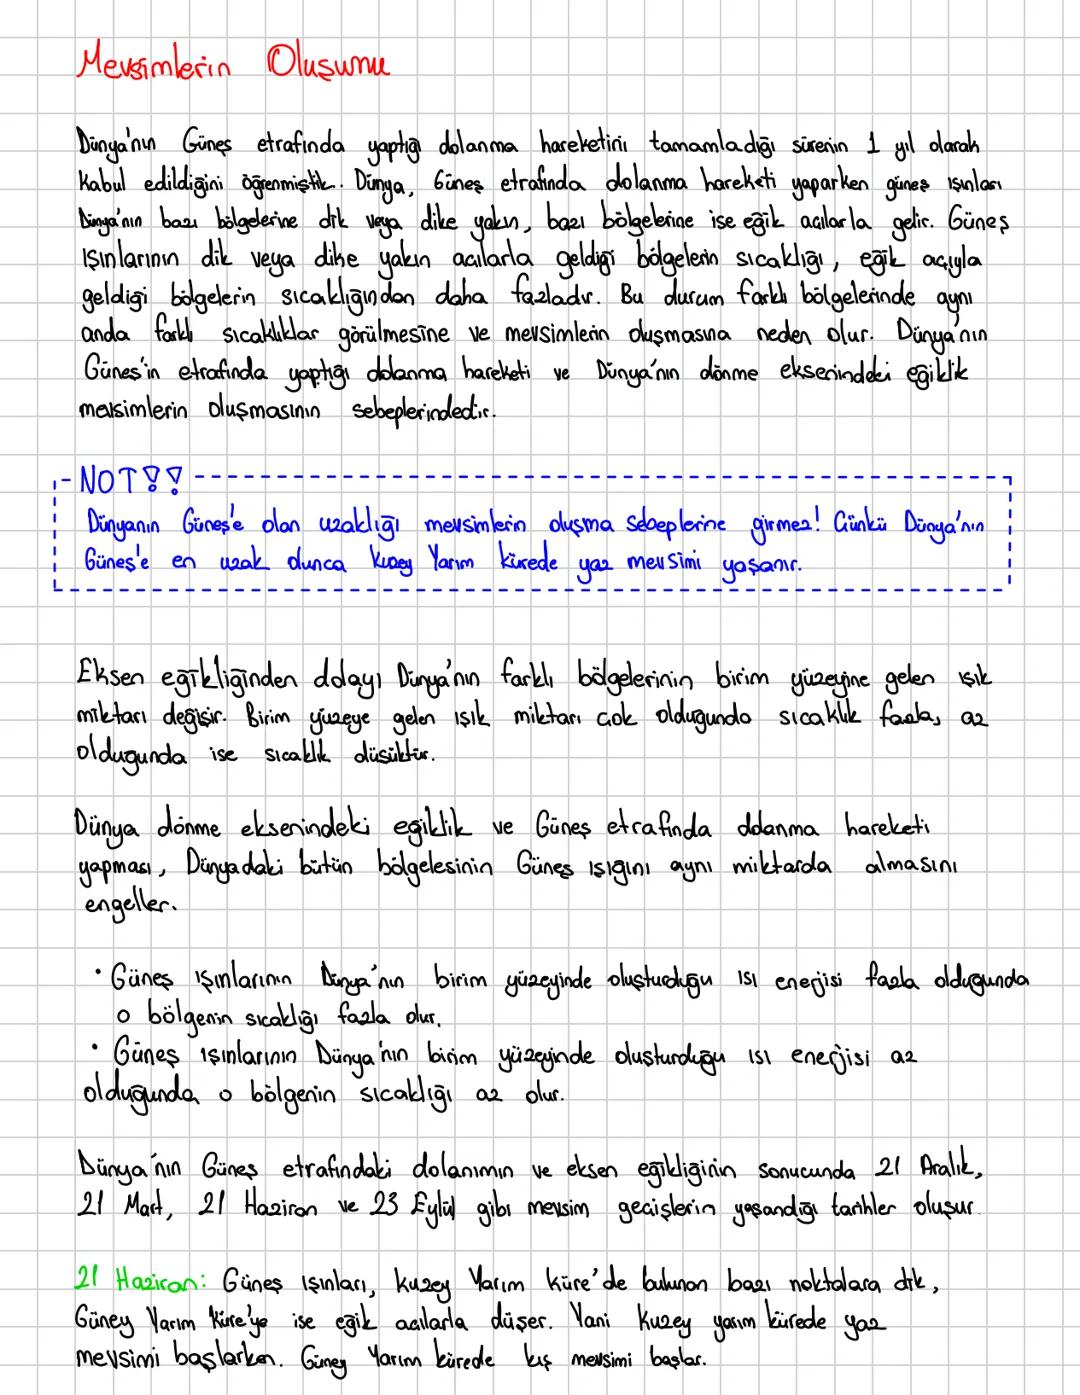 Mevsimlerin Oluşumu
Dünya'nın Güneş etrafında yaptığı dolanma hareketini tamamladığı sürenin 1 yıl olarak
Kabul edildiğini öğrenmiştik. Dünya, Güneş etrafında dolanma hareketi yaparken güneş ışınları
Dünya'nın bazı bölgelerine dik veya dike yakın, bazı bölgelerine ise eğik açılarla gelir. Güneş
ışınlarının dik veya dike yakın açılarla geldiği bölgelerin sıcaklığı, eğik açıyla
geldiği bölgelerin sıcaklığından daha fazladır. Bu durum farklı bölgelerinde aynı
anda farklı sıcaklıklar görülmesine ve mevsimlerin oluşmasına neden olur. Dünya'nın
Güneş'in etrafında yaptığı dolanma hareketi ve Dünya'nın dönme ekserindeki eğiklik
mevsimlerin oluşmasının sebeplerindedir.
NOT!!
Dünyanın Güneş'e olan uzaklığı mevsimlerin oluşma sebeplerine girmez! Çünkü Dünya'nın
Güneş'e en uzak olunca Kuzey Yarım kürede yaz mevsimi yaşanır.
Eksen eğikliğinden dolayı Dünya'nın farklı bölgelerinin birim yüzeyine gelen ışık
miktarı değişir. Birim yüzeye gelen ışık miktarı çok olduğunda sıcaklık fazla, az
olduğunda ise sıcaklık düşüktür.
Dünya dönme eksenindeki eğiklik ve Güneş etrafında dolanma hareketi
yapması, Dünyadaki bütün bölgelesinin Güneş ışığını aynı miktarda almasını
engeller.
• Güneş ışınlarının Dünya'nın birim yüzeyinde oluşturduğu ısı enerjisi fazla olduğunda
o bölgenin sıcaklığı fazla olur.
• Güneş ışınlarının Dünya'nın birim yüzeyinde oluşturduğu ısı enerjisi az
olduğunda o bölgenin sıcaklığı az olur.
Dünya'nın Güneş etrafındaki dolanımın ve eksen eğikliğinin sonucunda 21 Aralık,
21 Mart, 21 Haziran ve 23 Eylül gibi mevsim geçişlerin yaşandığı tarihler oluşur.
21 Haziran: Güneş ışınları, kuzey Yarım Küre'de bulunan bazı noktalara dik,
Güney Yarım Küre'ye ise eğik açılarla düşer. Yani Kuzey yarım kürede yaz
mevsimi başlarken. Güney Yarım kürede kış mevsimi başlar.